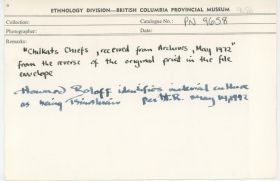 ETHNOLOGY DIVISION—BRITISH COLUMBIA PROVINCIAL MUSEUM
Collection: Catalogue No.: PN 9658
Photographer: Date:
Remarks:
"Chilkats Chiefs, received from Archives, May 1972"
from the reverse of the original print in the file
envelope
Howard Roloff identifies material culture
as being Tsimshian per H.R. May 14, 1992